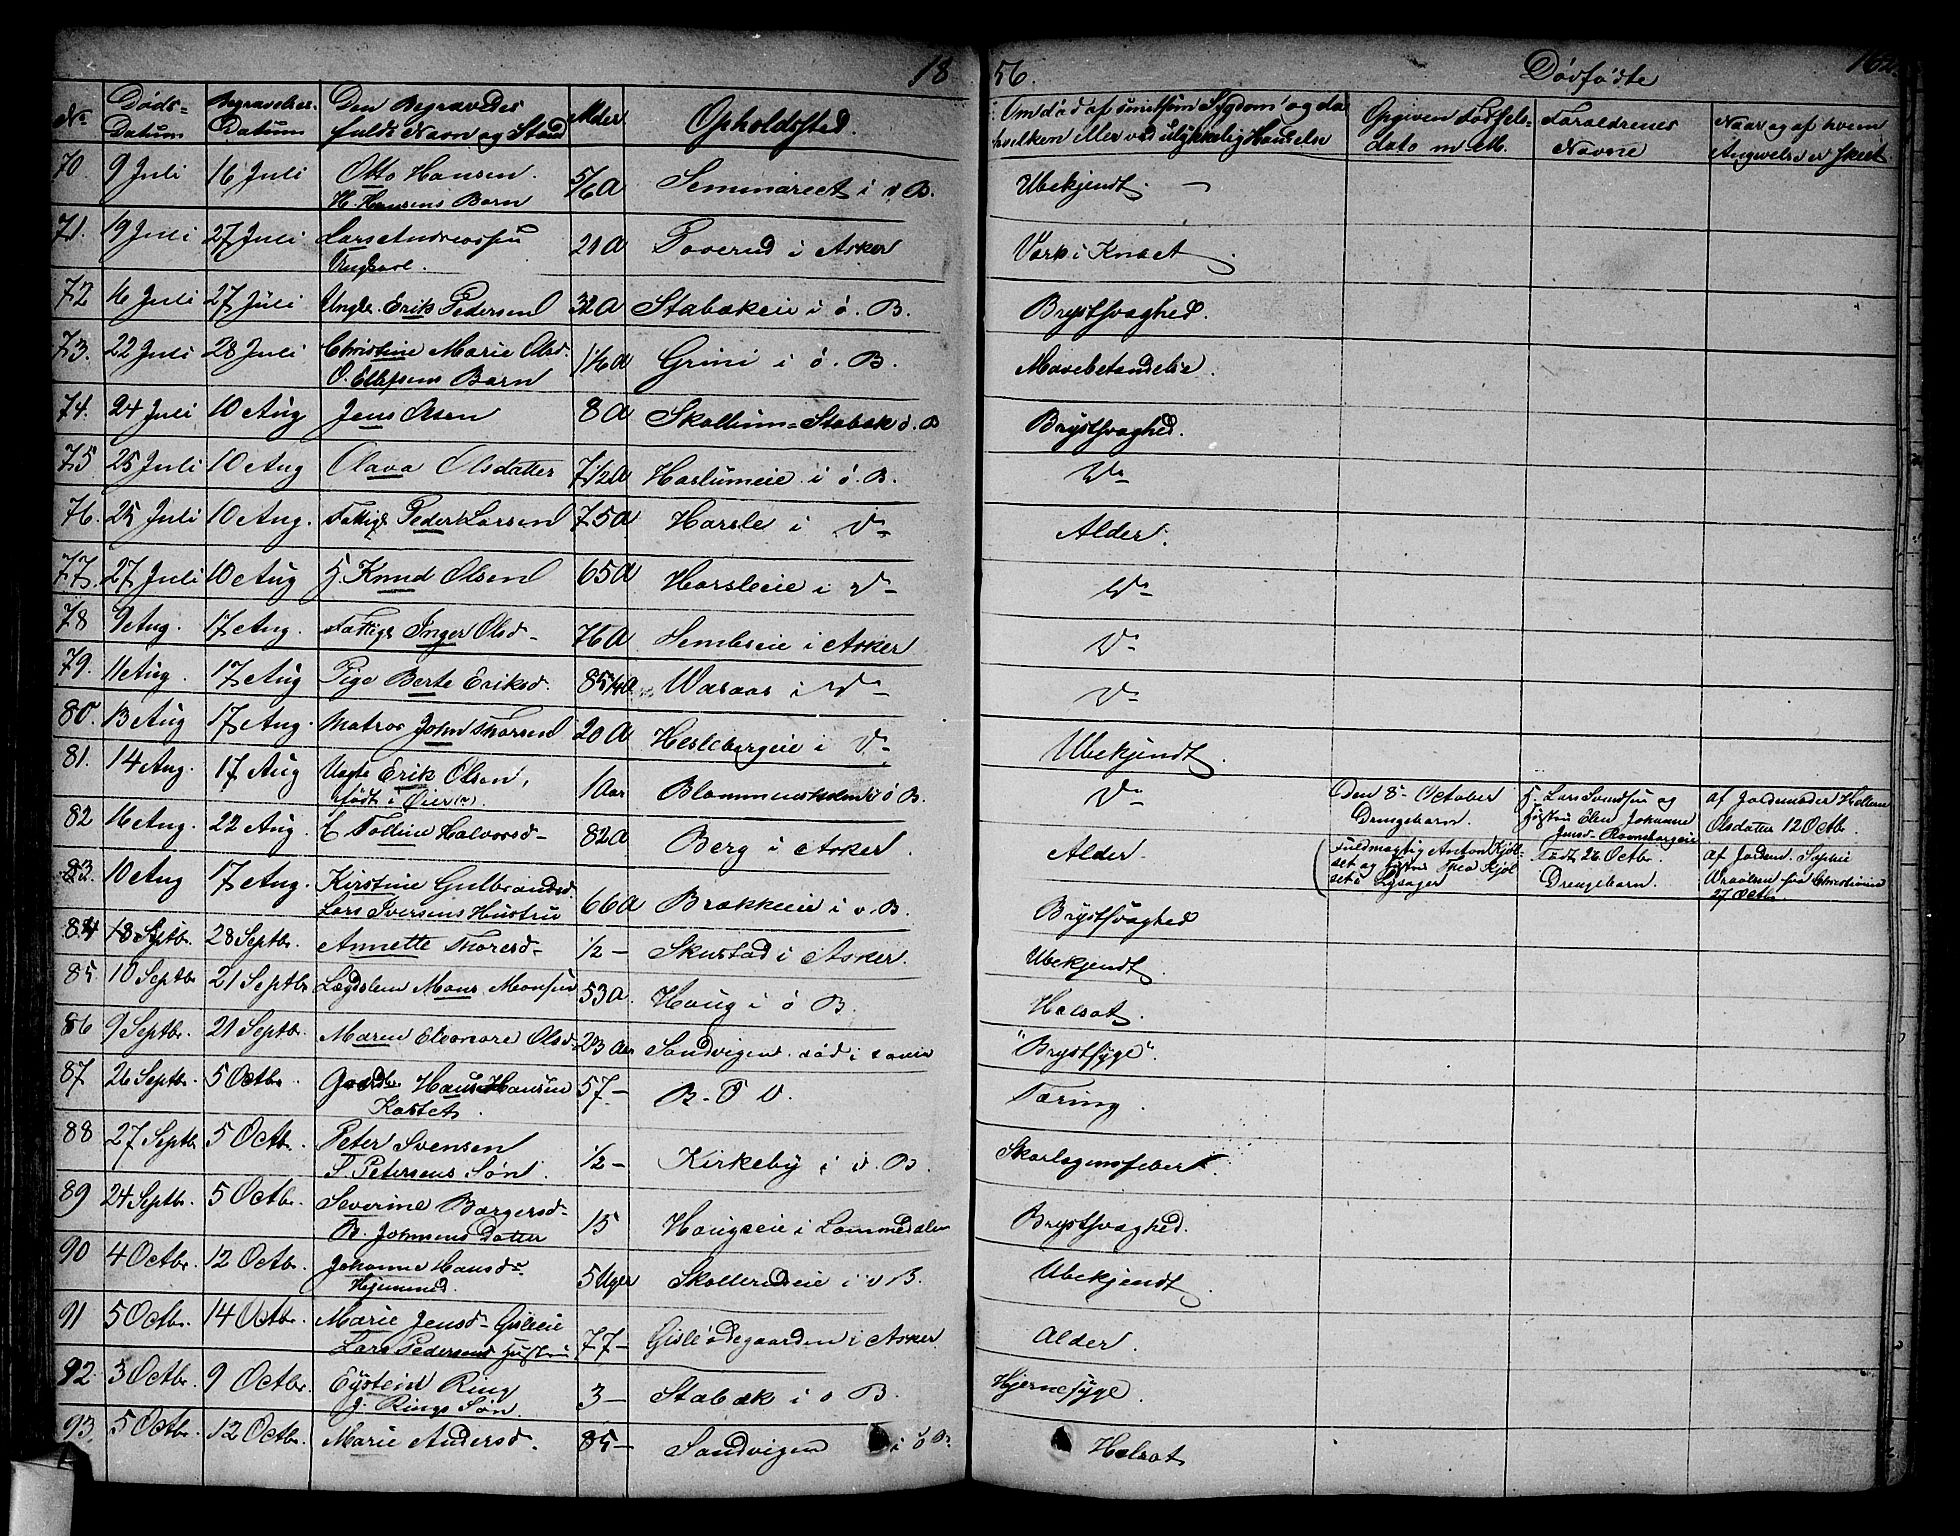 18 56. Dødfødte 162
No Døds-Datum Begravelses-Datum Den Begravedes fulde Navn og Stand Alder Opholdssted Om død af smitsom Sygdom og da hvilken eller ved ulykkelig Hændelse Opgiven Fødsels-dato m M. Forældrenes Navne Naar og af hvem Angivelse er skeet
70. 9 Juli 16 Juli Otto Hansen. 5/6 A Seminareet i v B. Ubekjendt. —
H. Hansens Barn
71. 19 Juli 27 Juli Lars Andreassen 21 A Toverud i Asker Værk i Knæet.
Ungkarl.
72 16 Juli 27 Juli Ungk. Erik Pedersen 32 A Stabækeie i ø. B. Brystsvaghed.
73. 22 Juli 28 Juli Christine Marie Olsd. 1 1/6 A Grini i ø. B. Mavebetændelse.
O. Ellefsens Barn
74. 24 Juli 10 Aug Jens Olsen 8 A Skallum-Stabæk ø. B Brystsvaghed.
75 25 Juli 10 Aug Olava Olsdatter 7 1/2 A Haslumeie i ø. B. Do
76. 25 Juli 10 Aug. Fattige Peder Larsen 75 A Harsle i Do Alder.
77. 27 Juli 10 Aug G. Knud Olsen 65 A Harsleeie i Do Do
78 9 Aug. 17 Aug. Fattige Inger Olsd- 76 A Hembseie i Asker Do
79. 11 Aug. 17 Aug Pige Berte Eriksd. 85 1/4 A Wøsaas i Do Do
80. 13 Aug 17 Aug. Matros John Thorsen 20 A Heslebergeie i Do Ubekjendt.
81. 14 Aug. 17 Aug Erik Olsen, 1 Aar Blommenholm i ø B. Do
født i Øier
Den 8- October Drengebarn. G. Lars Svendsen og Hustru Elen Johanne Jensd- Ramsborgeie af Jordemoder Hellene Olsdatter 12 Octb.
82 16 Aug. 22 Aug. E Tolline Halvorsd- 82 A Berg i Asker. Alder.
Fuldmægtig Anton Kjølset og Hustru Thea Kjølset i Lysager Født 26 Octbr. Drengebarn. af Jordem. Sophie fra Christiania 27 Octbr.
83. 10 Aug 17 Aug. Kirstine Gulbrandsd. 66 A Brækkeeie i v. B. Brystsvaghed
Lars Iversens Hustru
84 18 Septbr. 28 Septbr. Annette Thoresd- 1/2 - Skustad i Asker. Ubekjendt.
85 10 Septbr 21 Septbr Lægdslem Mons Monsen 53 A. Houg i ø B. Halsot.
86 9 Septbr. 21 Septbr. Maren Eleonore Olsd- 23 Aar Sandvigen. "Brystsyge".
87 26 Septbr. 5 Octbr. Gaardbr Hans Hansen 57- B. Tæring.
88 27 Septbr 5 Octbr. Peter Svensen 1/2 - Kirkeby i v. B. Skarlagensfeber
S. Petersens Søn.
89 24 Septbr. 5 Octbr. Severine Børgersd- 15 Haugseie i Lommedalen Brystsvaghed.
B. Johnsens Datter
90 4 Octbr. 12 Octbr. Johanne Hansd- 5 Uger Skollerudeie i v B. Ubekjendt.
Hjemmed.
91 5 Octbr. 14 Octbr. Marie Jensd- Gisleeie 77- Gisleødegaarden i Asker. Alder.
Lars Pedersens Hustru
92. 3 Octbr. 9 Octbr. Eystein Ring 3- Stabæk i ø B. Hjernesyge.
J. Rings Søn.
93. 5 Octbr. 12 Octbr. Marie Andersd. 85- Sandvigen i ø B. Halsot